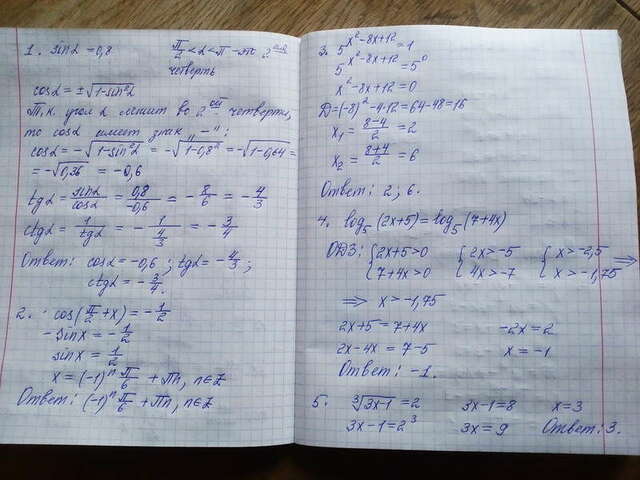 1. sinα = 0,8 π/2 < α < π - это 2ой
четверть
cosα = ±√(1-sin²α)
Т.к. угол α лежит во 2ой четверти,
то cosα имеет знак „-“;
cosα = -√(1-sin²α) = -√(1-0,8²) = -√(1-0,64) =
= -√0,36 = -0,6
tgα = sinα/cosα = 0,8/-0,6 = -8/6 = -4/3
ctgα = 1/tgα = -1/(4/3) = -3/4
Ответ: cosα = -0,6; tgα = -4/3;
ctgα = -3/4.
2. cos(π/2 + x) = -1/2
-sinx = -1/2
sinx = 1/2
x = (-1)ⁿ π/6 + πn, n∈Z
Ответ: (-1)ⁿ π/6 + πn, n∈Z
3. 5^(x²-8x+12) = 1
5^(x²-8x+12) = 5⁰
x²-8x+12 = 0
D = (-8)² - 4·12 = 64-48 = 16
x₁ = (8-4)/2 = 2
x₂ = (8+4)/2 = 6
Ответ: 2; 6.
4. log₅(2x+5) = log₅(7+4x)
ОДЗ: {2x+5>0 {2x>-5 {x>-2,5 ⟹
{7+4x>0 {4x>-7 {x>-1,75
⟹ x>-1,75
2x+5 = 7+4x -2x = 2
2x-4x = 7-5 x = -1
Ответ: -1.
5. ∛(3x-1) = 2 3x-1 = 8 x = 3
3x-1 = 2³ 3x = 9 Ответ: 3.